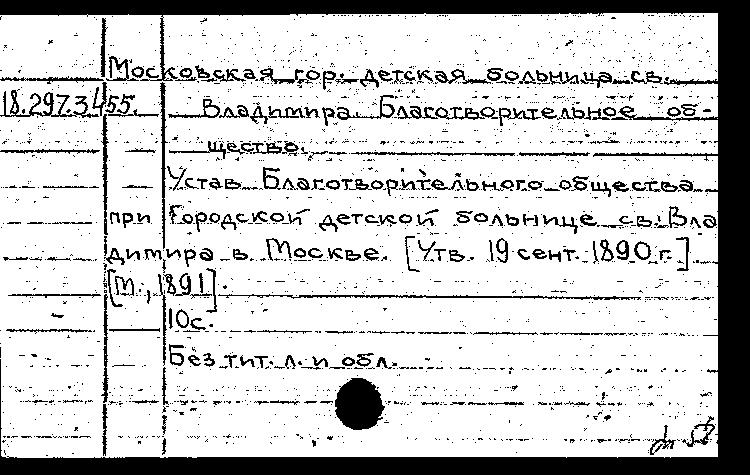 Московская гор. детская больница св.
18.297.3.455. Владимира. Благотворительное об-
щество.
Устав Благотворительного общества
при Городской детской больнице св. Вла
димира в Москве. [Утв. 19 сент. 1890 г.]
[М., 1891].
10с.
Без тит. л. и обл.